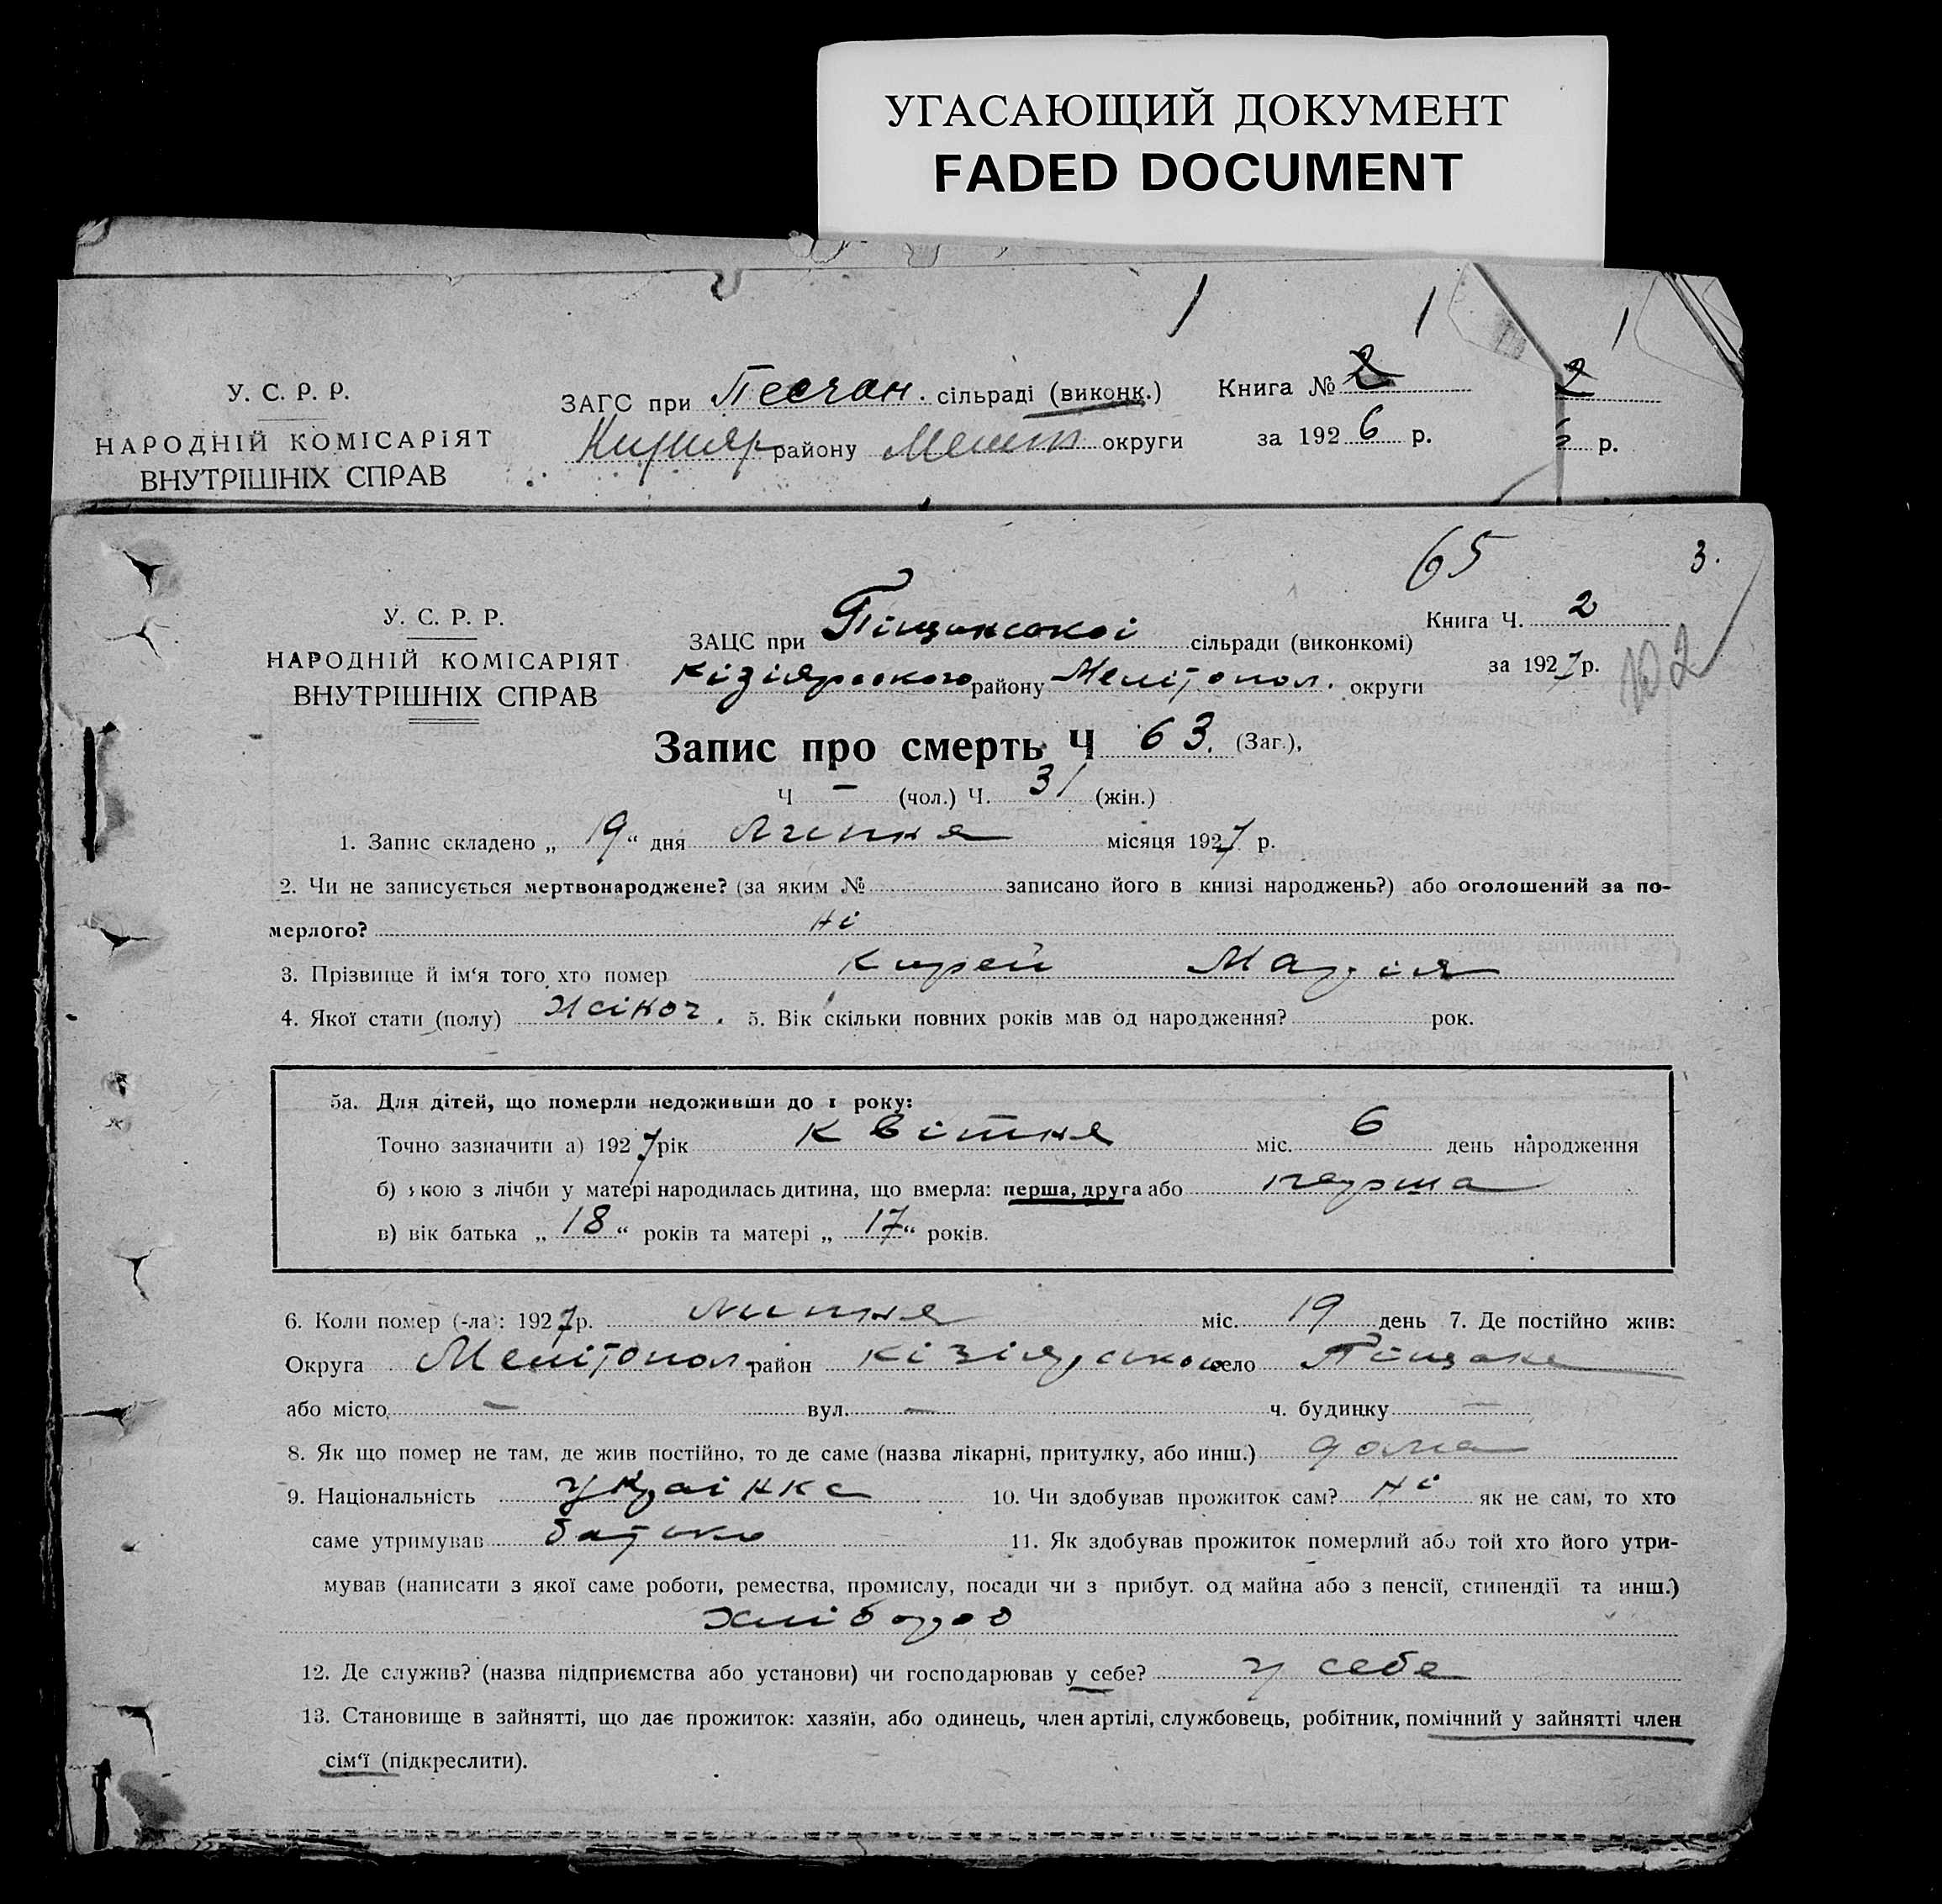 УГАСАЮЩИЙ ДОКУМЕНТ
FADED DOCUMENT
У. С. Р. Р.
НАРОДНІЙ КОМІСАРІЯТ
ВНУТРІШНІХ СПРАВ
ЗАГС при Песчан. сільраді (виконк.) Книга № 2
району Мелит округи за 1926 р.
2
6 р.
65 3.
102
У. С. Р. Р.
НАРОДНІЙ КОМІСАРІЯТ
ВНУТРІШНІХ СПРАВ
ЗАЦС при Піщанської сільради (виконкомі) Книга Ч. 2
Кізіярського району Мелітопол. округи за 1927 р.
Запис про смерть Ч 63. (Заг.),
Ч — (чол.) Ч. 31 (жін.)
1. Запис складено „ 19 “ дня липня місяця 1927 р.
2. Чи не записується мертвонароджене? (за яким № записано його в книзі народжень?) або оголошений за по-
мерлого? ні
3. Прізвище й ім‘я того хто помер Кирей Марія
4. Якої стати (полу) жіноч. 5. Вік скільки повних років мав од народження? рок.
5а. Для дітей, що померли недоживши до 1 року:
Точно зазначити а) 1927 рік Квітня міс. 6 день народження
б) якою з лічби у матері народилась дитина, що вмерла: перша, друга або перша
в) вік батька „ 18 “ років та матері „ 17 “ років.
6. Коли помер (-ла): 1927 р. липня міс. 19 день 7. Де постійно жив:
Округа Мелітопол. район Кізіярського село Піщане
або місто — вул. — ч. будинку —
8. Як що помер не там, де жив постійно, то де саме (назва лікарні, притулку, або инш.) дома
9. Національність українка 10. Чи здобував прожиток сам? ні як не сам, то хто
саме утримував батько 11. Як здобував прожиток померлий або той хто його утри-
мував (написати з якої саме роботи, ремества, промислу, посади чи з прибут. од майна або з пенсії, стипендії та инш.)
хлібороб
12. Де служив? (назва підприємства або установи) чи господарював у себе? у себе
13. Становище в зайнятті, що дає прожиток: хазяїн, або одинець, член артілі, службовець, робітник, помічний у зайнятті член
сім‘ї (підкреслити).